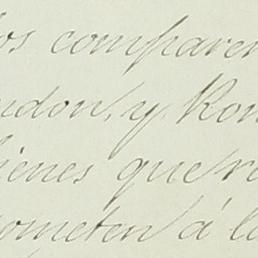 los comparen
ndon, y Ron
bienes que re
someten á la